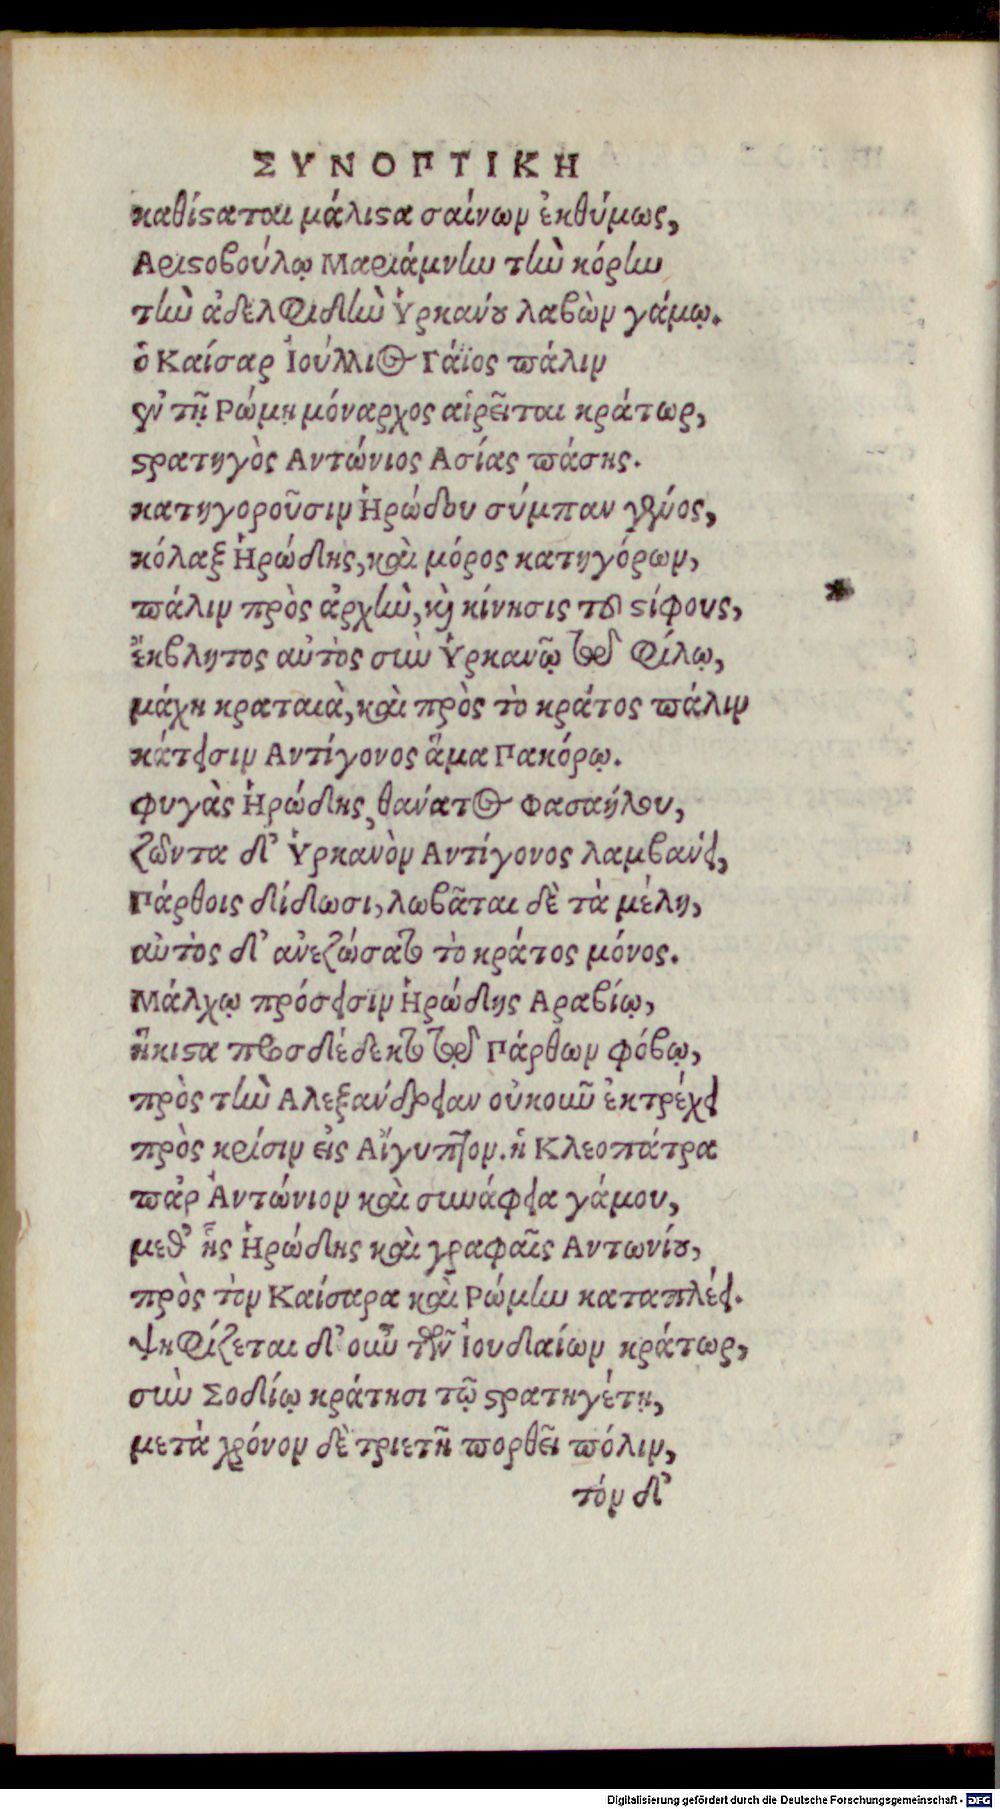 ΣΥΝΟΠΤΙΚΗ
καθίσαται μάλιστα σαίνων ἐκθύμως,
Αριστοβούλῳ Μαριάμνην τὴν κόρην
τὴν ἀδελφιδὴν Ὑρκανοῦ λαβὼν γάμῳ.
ὁ Καίσαρ Ἰούλλιος Γάϊος πάλιν
ἐν τῇ Ρώμῃ μόναρχος αἱρεῖται κράτωρ,
στρατηγὸς Αντώνιος Ασίας πάσης.
κατηγοροῦσιν Ἡρώδου σύμπαν γένος,
κόλαξ Ἡρώδης, καὶ μόρος κατηγόρων,
πάλιν πρὸς ἀρχὴν, καὶ κίνησις τοῦ στίφους,
ἔκβλητος αὐτὸς σὺν Ὑρκανῷ τῷ φίλῳ,
μάχη κραταιὰ, καὶ πρὸς τὸ κράτος πάλιν
κάτεισιν Αντίγονος ἅμα Πακόρῳ.
φυγὰς Ἡρώδης, θάνατος Φασαήλου,
ζῶντα δ' Ὑρκανὸν Αντίγονος λαμβάνει,
Πάρθοις δίδωσι, λωβᾶται δὲ τὰ μέλη,
αὐτὸς δ' ἀνεζώσατο τὸ κράτος μόνος.
Μάλχῳ πρόσεισιν Ἡρώδης Αραβίῳ,
ἥκιστα προσδέδεκτο τῷ Πάρθων φόβῳ,
πρὸς τὴν Αλεξάνδρειαν οὐκοῦν ἐκτρέχει
πρὸς κρίσιν εἰς Αἴγυπτον. ἡ Κλεοπάτρα
παρ' Ἀντώνιον καὶ συνάφεια γάμου,
μεθ' ἧς Ἡρώδης καὶ γραφαῖς Αντωνίου,
πρὸς τὸν Καίσαρα καὶ Ρώμην καταπλέει.
ψηφίζεται δ' οὖν τῶν Ἰουδαίων κράτωρ,
σὺν Σοδίῳ κράτησι τῷ στρατηγέτῃ,
μετὰ χρόνον δὲ τριετῆ πορθεῖ πόλιν,
τὸν δ'
Digitalisierung gefördert durch die Deutsche Forschungsgemeinschaft - DFG